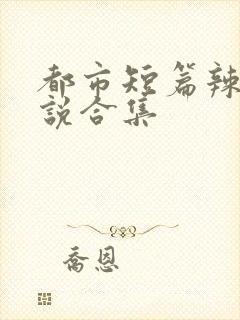 都市短篇辣
说合集
乔恩